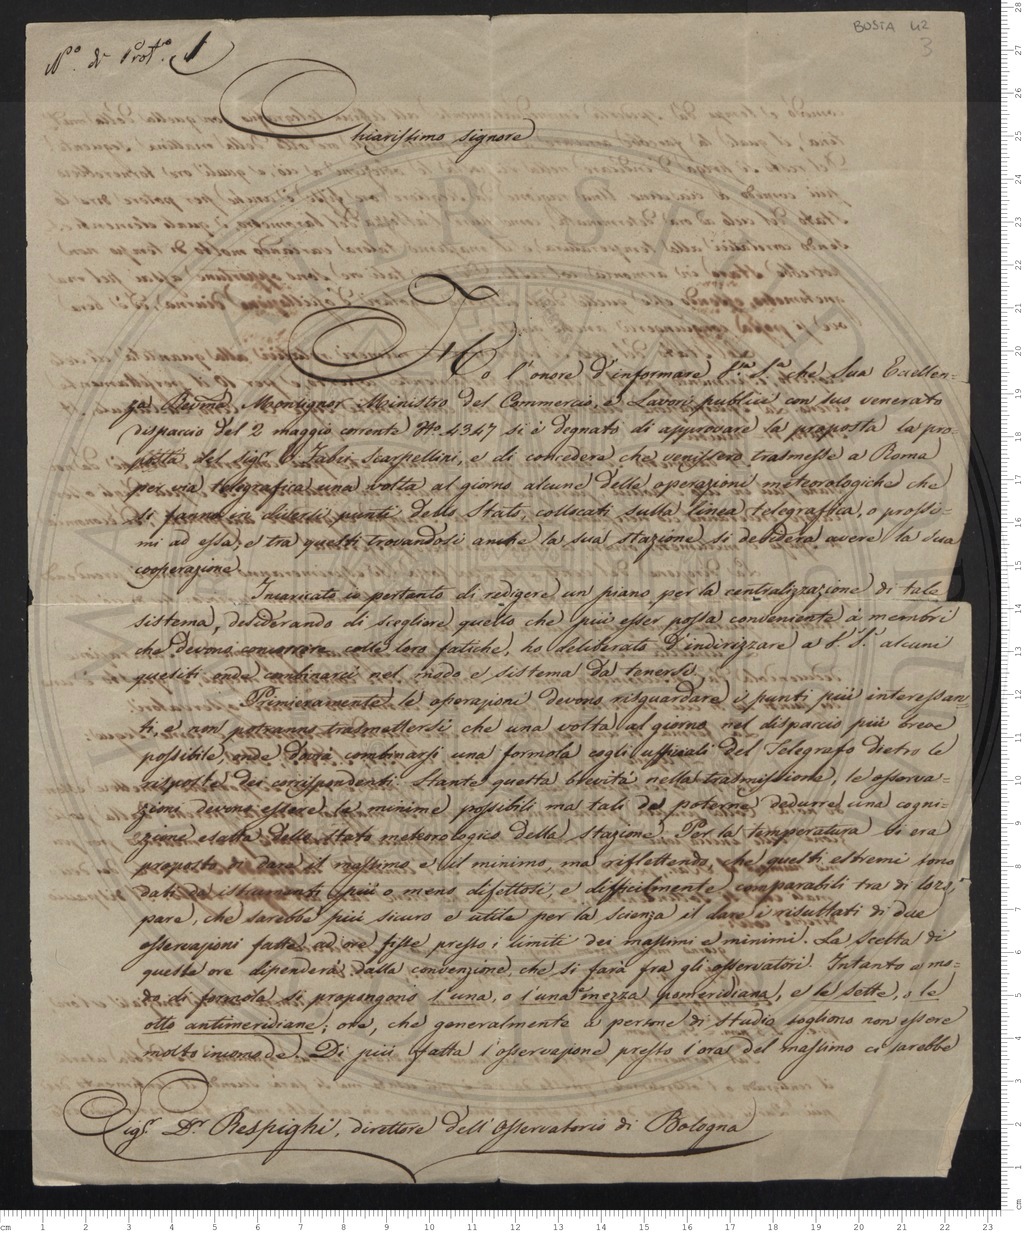 BUSTA 42
3
N.º di Prot.º 1
Chiarissimo Signore
Ho l'onore d'informare V.ra S.ia che Sua Eccellen-
za Revmã Monsignor Ministro del Commercio, e Lavori publici con suo venerato
dispaccio del 2 maggio corrente Nº 4347 si è degnato di approvare la proposta la pro-
posta del sig.r Fabri Scarpellini, e di concedere che venissero trasmesse a Roma
per via telegrafica una volta al giorno alcune delle operazioni meteorologiche che
si fanno in diversi punti dello Stato, collocati sulla linea telegrafica, o prossi-
mi ad essa, e tra questi trovandosi anche la sua stazione si desidera avere la sua
cooperazione.
Incaricato io pertanto di redigere un piano per la centralizzazione di tale
sistema, desiderando di scegliere quello che più esser possa conveniente a' membri
che devono concorrere colle loro fatiche, ho deliberato d'indirizzare a V. S. alcuni
quesiti onde combinarci nel modo e sistema da tenersi.
Primieramente le operazioni devono risguardare i punti più interessan-
ti e non potranno trasmettersi che una volta al giorno nel dispaccio più breve
possibile, onde dovrà combinarsi una formola cogli uffiziali del Telegrafo dietro le
risposte dei corrispondenti. Stante questa brevità nella trasmissione, le osserva-
zioni devono essere le minime possibili ma tali da poterne dedurre una cogni-
zione esatta dello stato meteorologico della stazione. Per la temperatura si era
proposto di dare il massimo e il minimo, ma riflettendo che questi estremi sono
dati da istrumenti più o meno difettosi, e difficilmente comparabili tra di loro,
pare, che sarebbe più sicuro e utile per la scienza il dare i risultati di due
osservazioni fatte ad ore fisse presso i limiti dei massimi e minimi. La scelta di
queste ore dipenderà dalla convenzione, che si farà fra gli osservatori. Intanto a mo-
do di formola si propongono l'una, o l'una e mezza pomeridiana, e le sette, o le
otto antimeridiane; ore, che generalmente a persone di studio sogliono non essere
molto incomode. Di più fatta l'osservazione presso l'ora del massimo ci sarebbe
Sig.r D.r Respighi, direttore dell'Osservatorio di Bologna